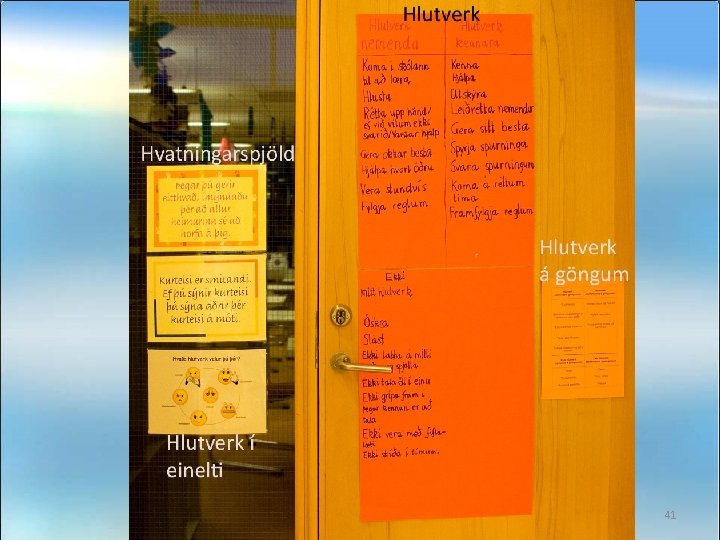 Hlutverk
Hlutverk nemenda
Hlutverk kennara
Koma í skólann
til að læra
Hlusta
Rétta upp hönd/
ef við vitum ekki
svarið/vantar hjálp
Gera okkar besta
Hjálpa hvort öðru
Vera stundvís
Fylgja reglum
Kenna
Hjálpa
Útskýra
Leiðrétta nemendur
Gera sitt besta
Spyrja spurninga
Svara spurningum
Koma á réttum
tíma
Framfylgja reglum
Hvatningarspjöld
Þegar þú gerir
eitthvað, ímyndaðu
þér að allur
heimurinn sé að
horfa á þig.
Kurteisi er smitandi.
Ef þú sýnir kurteisi
þú sýna aðrir þér
kurteisi á móti.
Hvaða hlutverk velur þú þér?
Hlutverk í
einelti
Ekki
mitt hlutverk
Öskra
Slást
Ekki labba á milli
spjalla
Ekki tala öll í einu
Ekki grípa fram í
þegar kennari er að
tala
Ekki vera með
Ekki stríða í tímum.
Hlutverk
á göngum
41